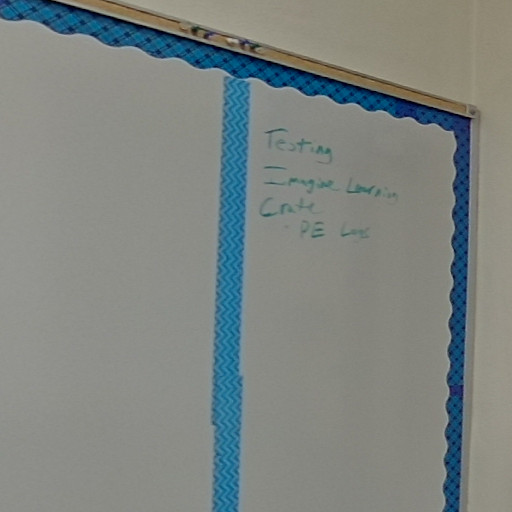 Testing
Imagine Learning
Crate
- PE Logs